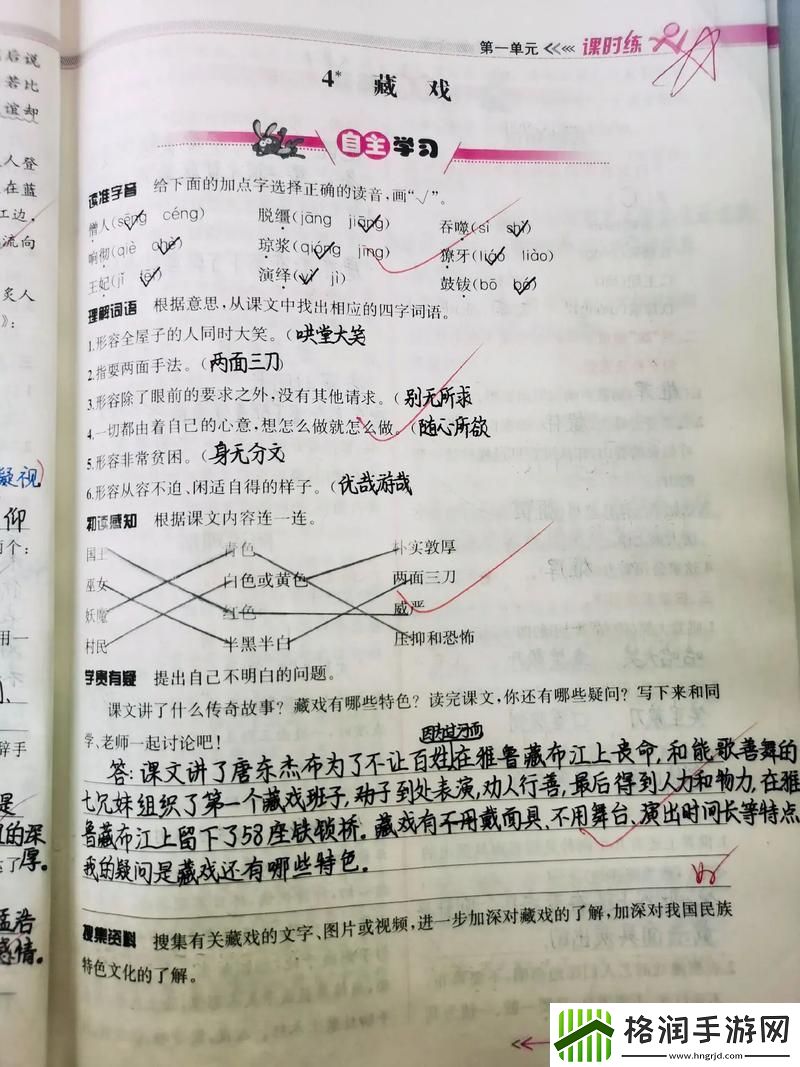 后说
若比
谊却
人登
在蓝
江边,
流向
炙人
》:
凝视)
仰
两个:
用一
辞手
是
的深
了厚。
孟浩
感情。
第一单元 课时练
4* 藏戏
自主学习
读准字音 给下面的加点字选择正确的读音,画“√”。
僧人(sēng céng) 脱缰(jāng jiāng) 吞噬(sì shì)
响彻(qiè chè) 琼浆(qióng jīng) 獠牙(liáo liào)
王妃(jǐ fēi) 演绎(yì jì) 鼓钹(bō bó)
理解词语 根据意思,从课文中找出相应的四字词语。
1.形容全屋子的人同时大笑。(哄堂大笑
2.指耍两面手法。(两面三刀)
3.形容除了眼前的要求之外,没有其他请求。(别无所求
4.一切都由着自己的心意,想怎么做就怎么做。(随心所欲
5.形容非常贫困。(身无分文
6.形容从容不迫、闲适自得的样子。(优哉游哉
初读感知 根据课文内容连一连。
国王 青色 朴实敦厚
巫女 白色或黄色 两面三刀
妖魔 红色 威严
村民 半黑半白 压抑和恐怖
学贵有疑 提出自己不明白的问题。
课文讲了什么传奇故事?藏戏有哪些特色?读完课文,你还有哪些疑问?写下来和同
学、老师一起讨论吧!
因为过河而
答:课文讲了唐东杰布为了不让百姓在雅鲁藏布江上丧命,和能歌善舞的
七兄妹组织了第一个藏戏班子,到处表演,劝人行善,最后得到人力和物力,在雅
鲁藏布江上留下了58座铁锁桥。藏戏有不用戴面具、不用舞台、演出时间长等特点
我的疑问是藏戏还有哪些特色。
搜集资料 搜集有关藏戏的文字、图片或视频,进一步加深对藏戏的了解,加深对我国民族
特色文化的了解。
格润手游网
www.hngrjd.com